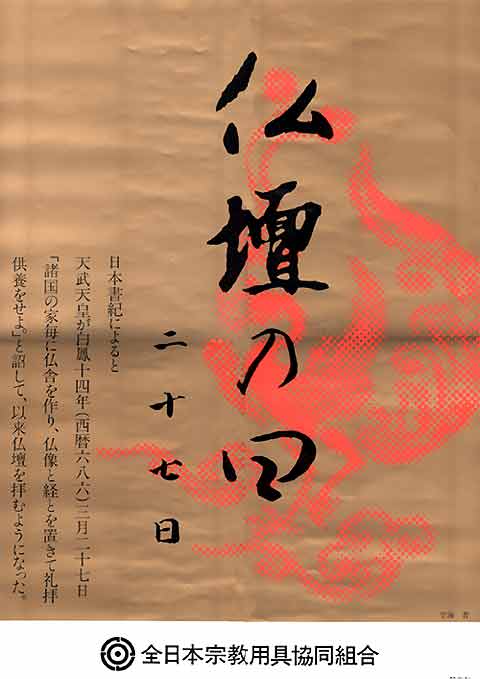 仏壇の日
二十七日
日本書紀によると
天武天皇が白鳳十四年(西暦六八六)三月二十七日
「諸国の家毎に仏舎を作り、仏像と経とを置きて礼拝
供養をせよ。」と詔して、以来仏壇を拝むようになった。
全日本宗教用具協同組合